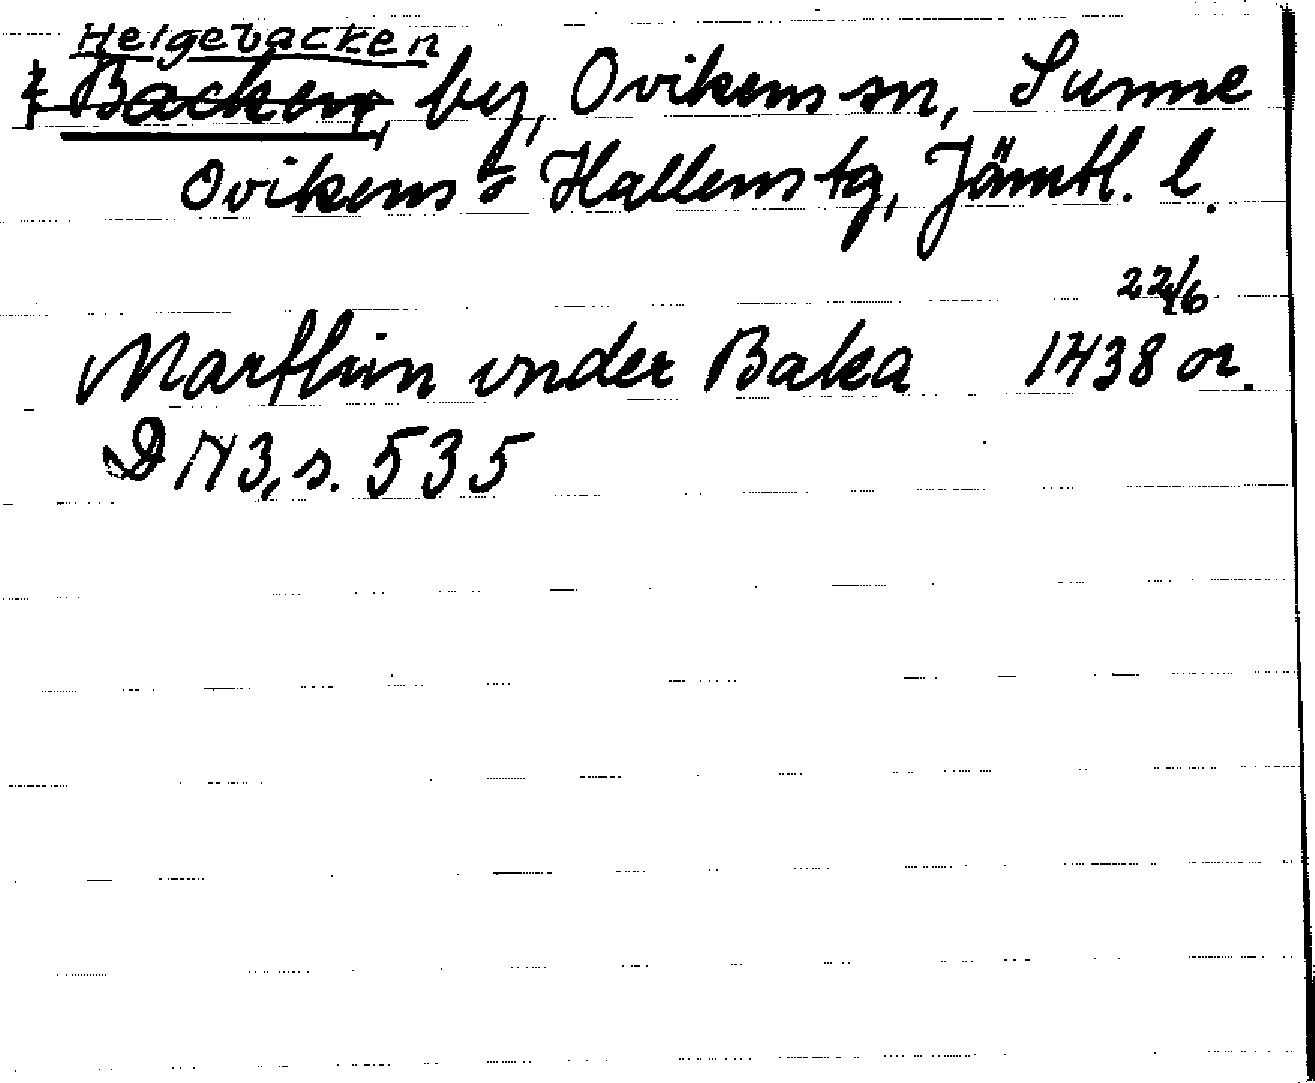 Helgebacken
‡ Backen, by, Ovikens sn, Sunne
Ovikens o Hallens tg, Jämtl. l.
22/6
Marfhin vnder Baka 1438 or.
DN 3, s. 535